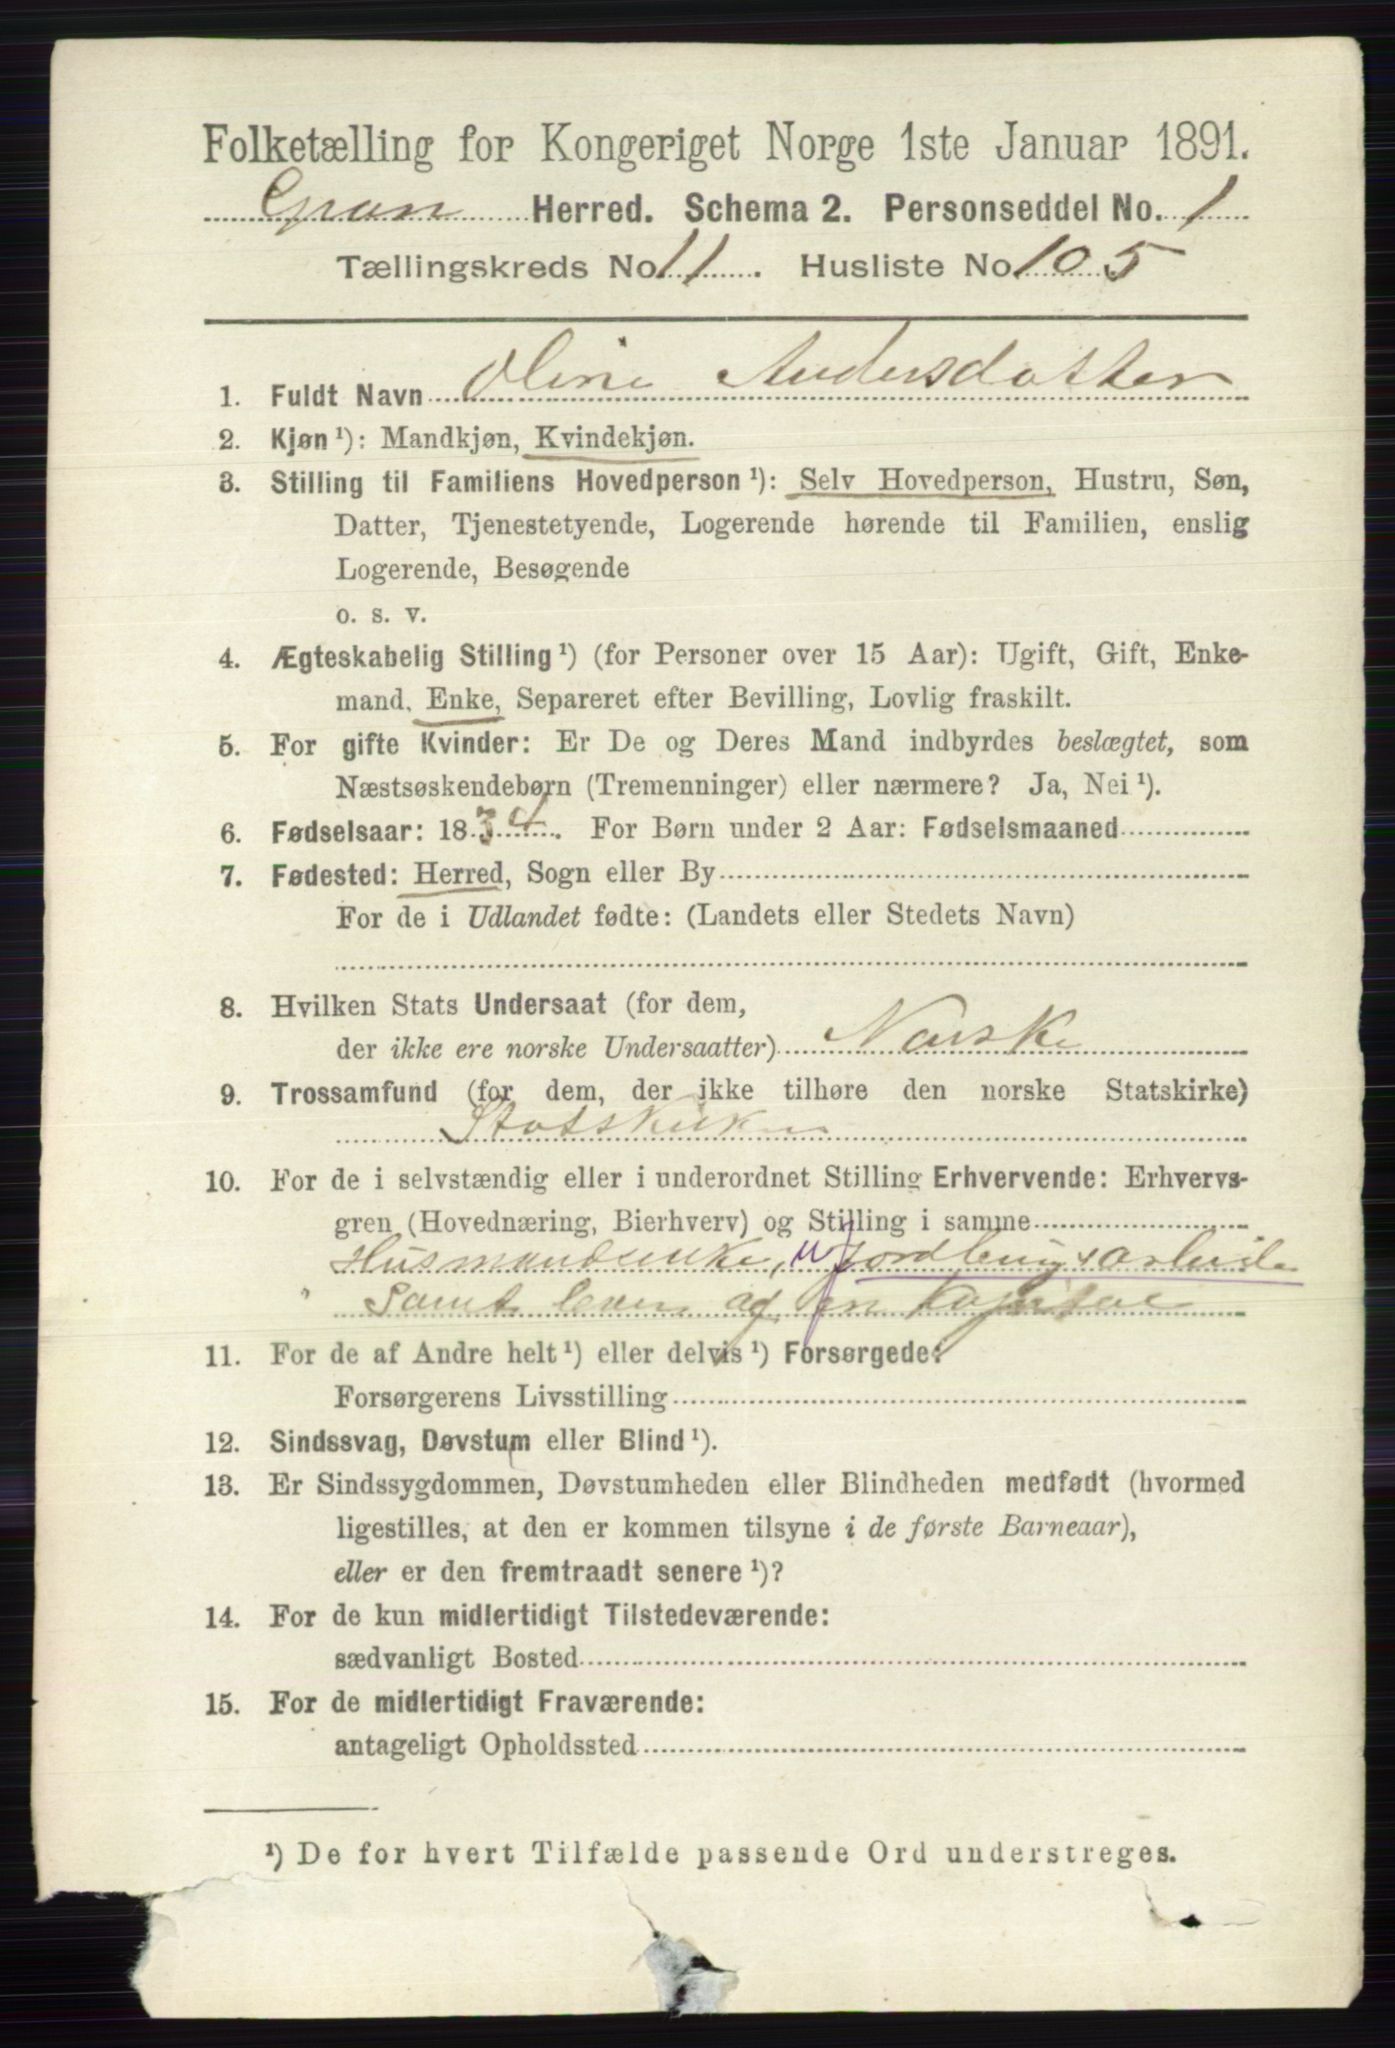 Folketælling for Kongeriget Norge 1ste Januar 1891.
Gran Herred. Schema 2. Personseddel No. 1
Tællingskreds No 11. Husliste No 105
1. Fuldt Navn Oline Andersdatter
2. Kjøn¹): Mandkjøn, Kvindekjøn.
3. Stilling til Familiens Hovedperson¹): Selv Hovedperson, Hustru, Søn,
Datter, Tjenestetyende, Logerende hørende til Familien, enslig
Logerende, Besøgende
o. s. v.
4. Ægteskabelig Stilling¹) (for Personer over 15 Aar): Ugift, Gift, Enke-
mand, Enke, Separeret efter Bevilling, Lovlig fraskilt.
5. For gifte Kvinder: Er De og Deres Mand indbyrdes beslægtet, som
Næstsøskendebørn (Tremenninger) eller nærmere? Ja, Nei¹).
6. Fødselsaar: 1834. For Børn under 2 Aar: Fødselsmaaned
7. Fødested: Herred, Sogn eller By
For de i Udlandet fødte: (Landets eller Stedets Navn)
8. Hvilken Stats Undersaat (for dem,
der ikke ere norske Undersaatter) Norsk
9. Trossamfund (for dem, der ikke tilhøre den norske Statskirke)
Statskirken
10. For de i selvstændig eller i underordnet Stilling Erhvervende: Erhvervs-
gren (Hovednæring, Bierhverv) og Stilling i samme
Husmandsenke, Jordbrugsarbeide
Samt lever af en
11. For de af Andre helt¹) eller delvis¹) Forsørgede:
Forsørgerens Livsstilling
12. Sindssvag, Døvstum eller Blind¹).
13. Er Sindssygdommen, Døvstumheden eller Blindheden medfødt (hvormed
ligestilles, at den er kommen tilsyne i de første Barneaar),
eller er den fremtraadt senere¹)?
14. For de kun midlertidigt Tilstedeværende:
sædvanligt Bosted
15. For de midlertidigt Fraværende:
antageligt Opholdssted
¹) De for hvert Tilfælde passende Ord understreges.